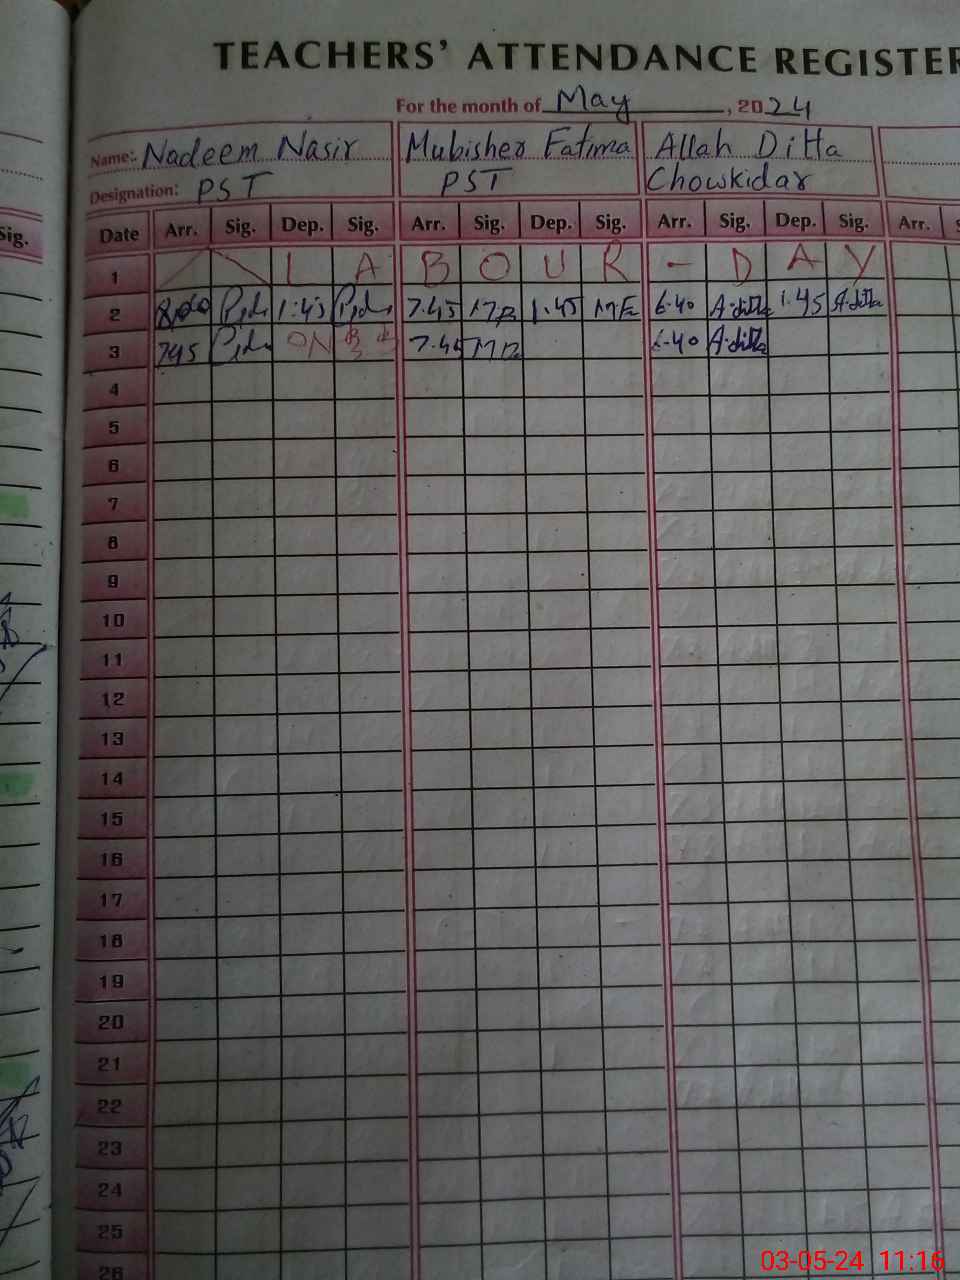 TEACHERS' ATTENDANCE REGISTER
For the month of May, 2024
Name: Nadeem Nasir Mubisher Fatima Allah Ditta
Designation: PST PST Chowkidar
Sig. Date Arr. Sig. Dep. Sig. Arr. Sig. Dep. Sig. Arr. Sig. Dep. Sig. Arr.
1 L A B O U R - D A Y
2 8:00 1:45 7.45 1.45 MF 6.40 A.ditta 1.45 A.ditta
3 745 ON 7.45 6.40 A.ditta
4
5
6
7
8
9
10
11
12
13
14
15
16
17
18
19
20
21
22
23
24
25
26
03-05-24 11:16